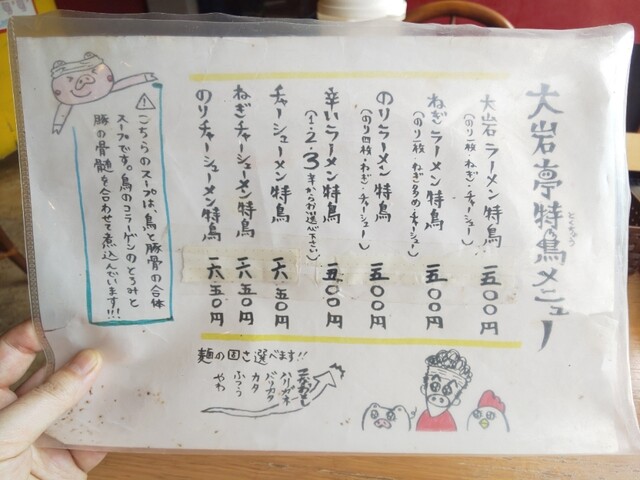 大岩亭特鳥メニュー
とくちょう
大岩ラーメン特鳥 一五〇〇円
(のり一枚・ねぎ・チャーシュー)
ねぎラーメン特鳥 一五〇〇円
(のり一枚・ねぎ多め・チャーシュー)
のりラーメン特鳥 一五〇〇円
(のり四枚・ねぎ・チャーシュー)
辛いラーメン特鳥 一五〇〇円
(1・2・3辛からお選べ下さい)
チャーシューメン特鳥 一六五〇円
ねぎチャーシューメン特鳥 一六五〇円
のりチャーシューメン特鳥 一六五〇円
⚠こちらのスープは、鳥と豚骨の合体
スープです。鳥のコラーゲンのとろみと
豚の骨髄を合わせて煮込んでいます!!!
麺の固さ選べます!!
ハリガネ
バリカタ
カタ
ふつう
やわ